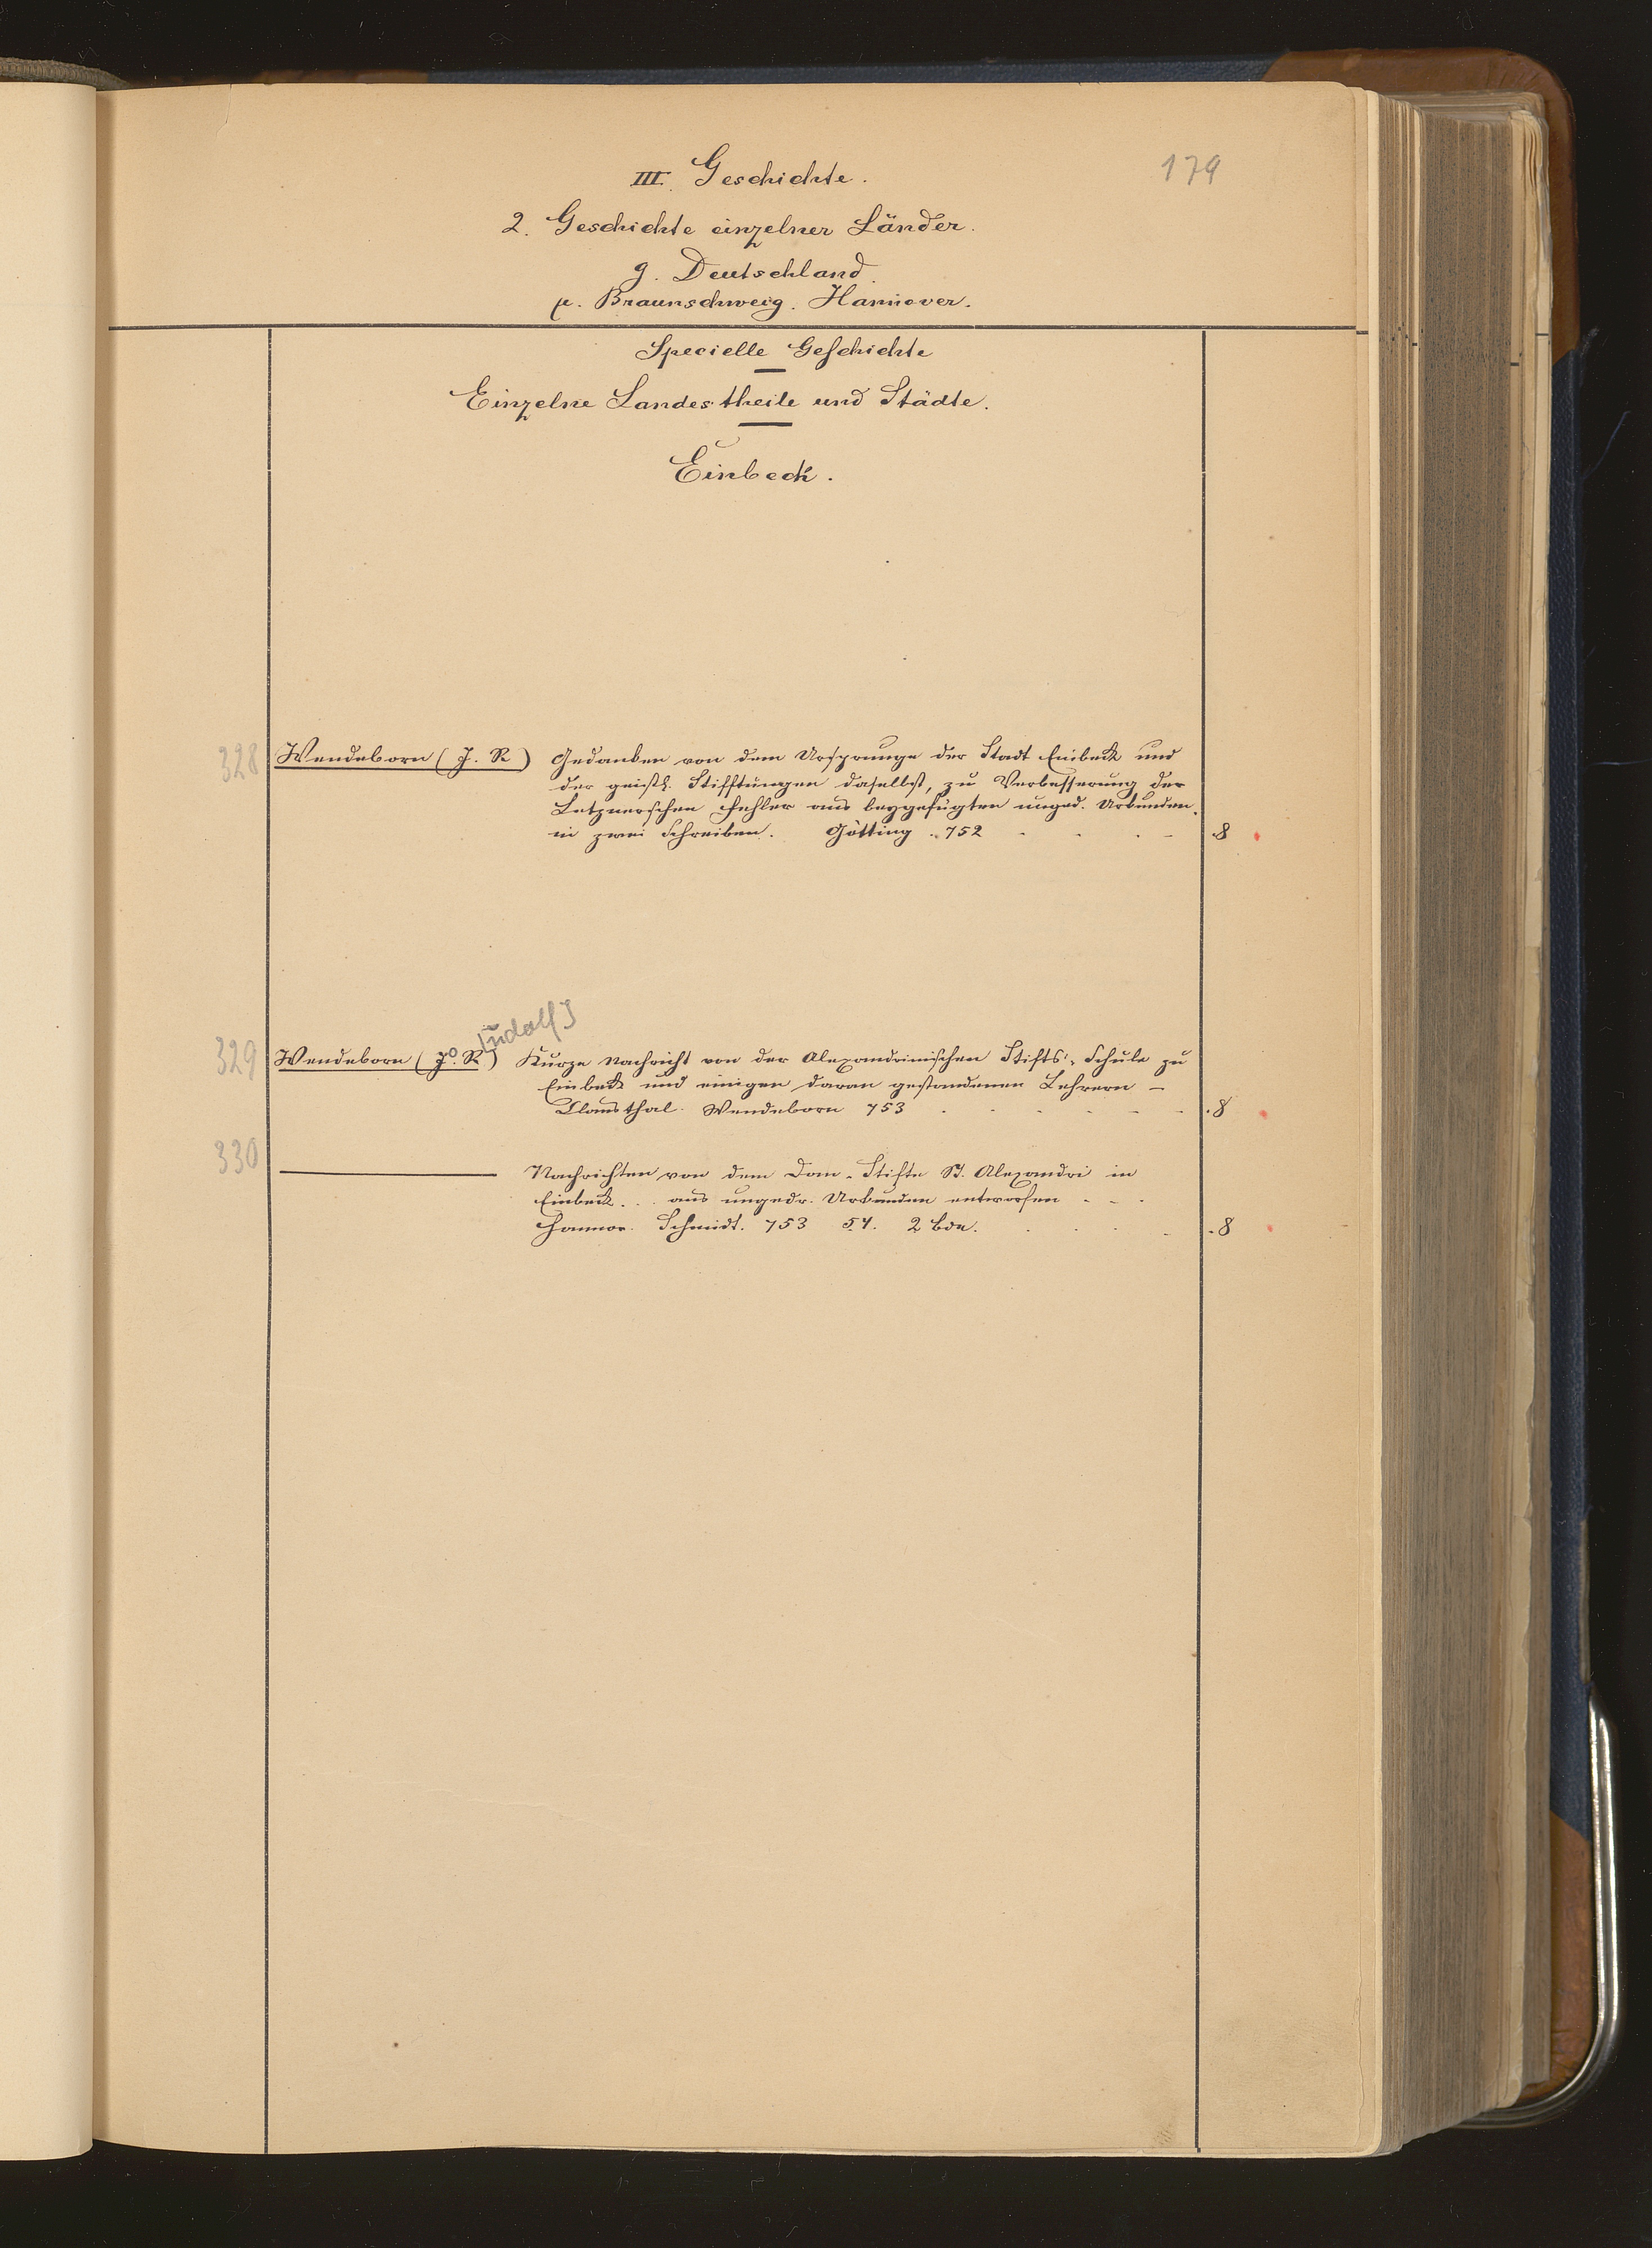 179
III. Geschichte.
2. Geschichte einzelner Länder.
g. Deutschland.
µ. Braunschweig. Hannover.
Specielle Geschichte
Einzelne Landestheile und Städte.
Einbeck.
328 Wendeborn (J. R) Gedanken von dem Ursprunge der Stadt Einbeck und
der geistl. Stifftungen daselbst, zu Verbesserung der
Letznerschen Fehler aus beygefügten unged. Urkunden,
in zwei Schreiben. Götting. 752 8
udolf]
329 Wendeborn (Jo. R) Kurze Nachricht von der Alexandrinischen Stifts-Schule zu
Einbeck und einigen daran gestandenen Lehrern –
Clausthal. Wendeborn 753 8
330 ——— Nachrichten von dem Dom-Stifte St. Alexandri in
Einbeck... aus ungedr. Urkunden entworfen
Hannov. Schmidt. 753 54. 2 Bde. 8